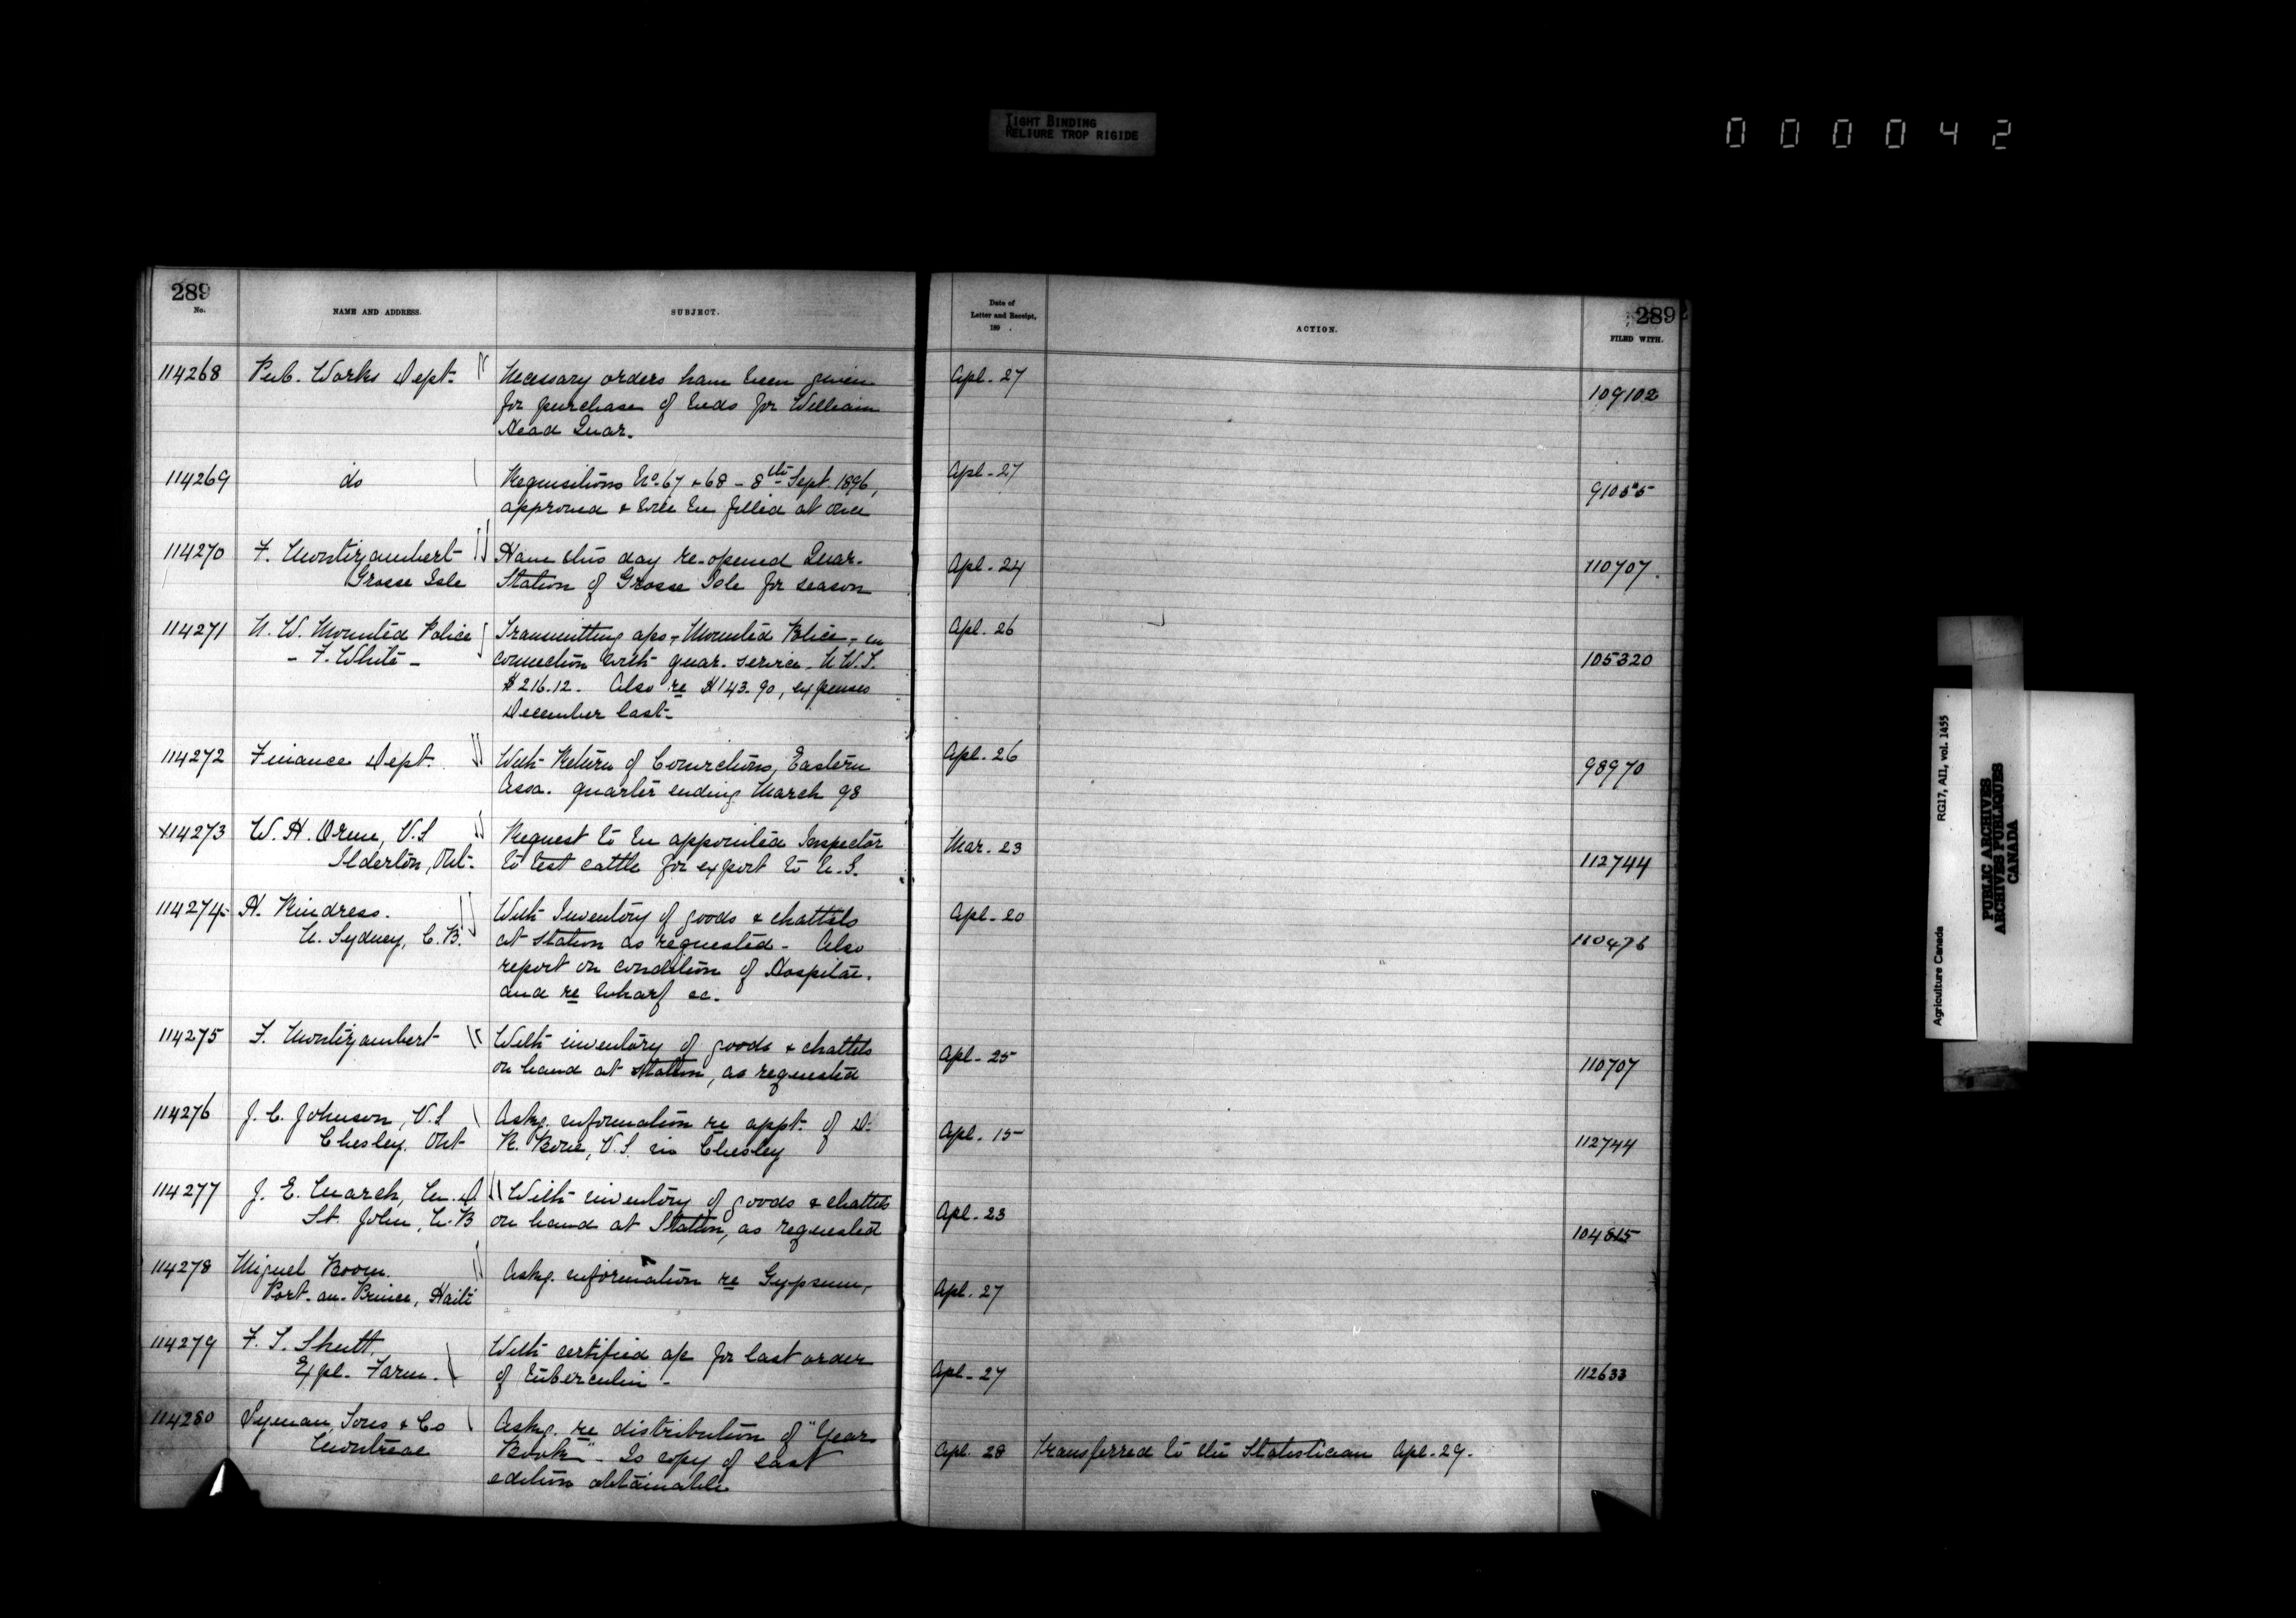 TIGHT BINDING
RELIURE TROP RIGIDE
000042
289
No. NAME AND ADDRESS. SUBJECT.
Date of
Letter and Receipt,
189 .
ACTION.
289
FILED WITH.
114268 Pub. Works Dept. Necessary orders have been given Apl. 27
for purchase of beds for William 109102
Head Quar.
114269 do Requisitions No. 67 & 68 - 8th Sept. 1896, Apl. 27
approved & will be filled at once 91055
114270 F. Montizambert Have this day re-opened Quar. Apl. 24 110707.
Grosse Isle Station of Grosse Isle for season
114271 N. W. Mounted Police Transmitting aps, Mounted Police, in Apl. 26
- F. White - connection with quar. service N.W.T. 105320
$216.12. Also re $143.90, expenses
December last-
114272 Finance Dept. With Return of Convictions, Eastern Apl. 26 98970
Assa. quarter ending March 98
114273 W. H. Orme, V.S Request to be appointed Inspector Mar. 23
Ilderton, Ont. to test cattle for export to U.S. 112744
114274 H. Rindress. With Inventory of goods & chattels Apl. 20
N. Sydney, C.B. at station as requested - Also 110476
report on condition of Hospital.
and re wharf &c.
114275 F. Montizambert With inventory of goods & chattels Apl. 25 110707
on hand at station, as requested
114276 J. C. Johnson, V.S Askg. information re appt. of D. Apl. 15
Chesley. Ont R. , V.S. in Chesley 112744
114277 J. E. March, M.D With inventory of goods & chattels Apl. 23
St. John, N.B on hand at Station, as requested 104815
114278 Miguel Boom. Askg. information re Gypsum, Apl. 27
Port-au-Prince, Haiti
114279 F. T. Shutt. With certified ap for last order Apl. 27 112633
Expl. Farm. of tuberculin -
114280 Lyman, Sons & Co Askg. re distribution of "Year
Montreal Book" - Is copy of last Apl. 28 Transferred to the Statistician Apl. 29.
edition obtainable
Agriculture Canada RG17, AII, vol. 1455
PUBLIC ARCHIVES
ARCHIVES PUBLIQUES
CANADA